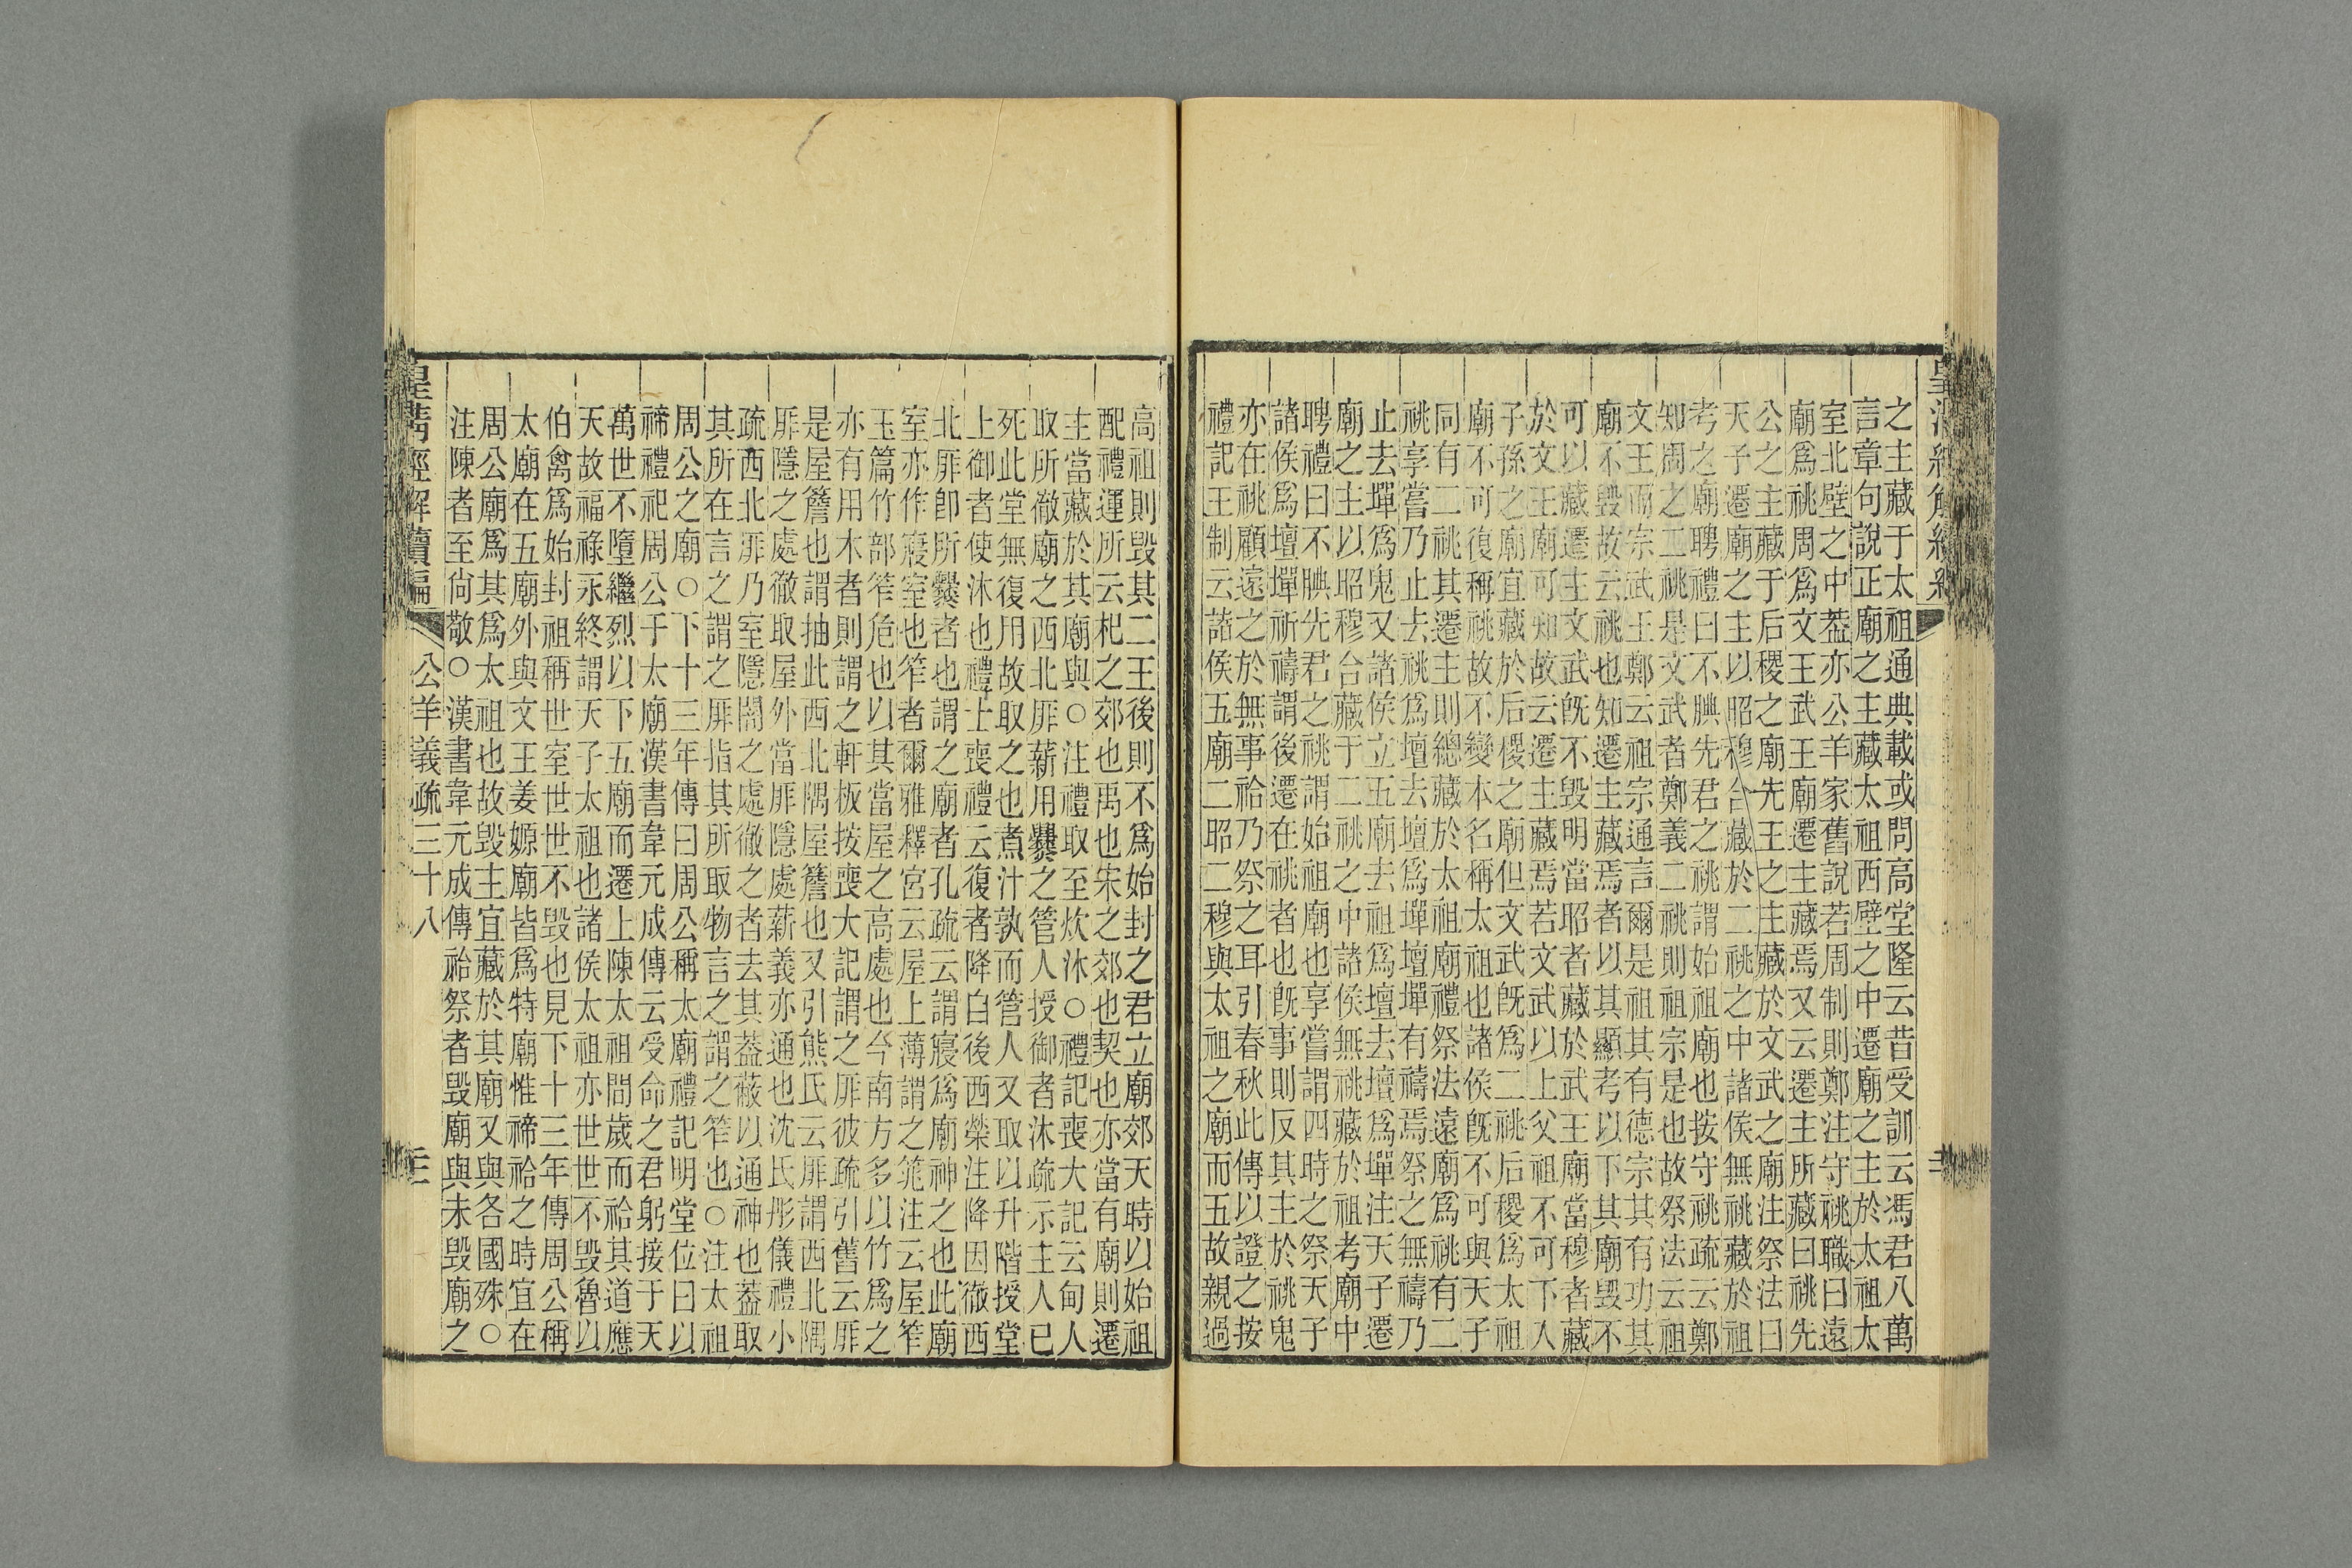 之主藏于太祖通典載或問高堂隆云昔受訓云馮君八萬
言章句說正廟之主藏太祖西壁之中遷廟之主於太祖太
室北壁之中葢亦公羊家舊說若周制則鄭注守祧職曰遠
廟爲祧周爲文王武王廟遷主藏焉又云遷主所藏曰祧先
公之主藏于后稷之廟先王之主藏於文武之廟注祭法曰
天子遷廟之主以昭穆合藏於二祧之中諸侯無祧藏於祖
考之廟聘禮曰不腆先君之祧謂始祖廟也按守祧疏云鄭
知周之二祧是文武者鄭義二祧則祖宗是也故祭法云祖
文王而宗武王鄭云祖宗通言爾是祖其有德宗其有功其
廟不毀故云祧也知遷主藏焉者以其顯考以下其廟毀不
可以藏遷主文武既不毀明當昭者藏於武王廟當穆者藏
於文王廟可知故云遷主藏焉若文武以上父祖不可下入
子孫之廟宜藏於后稷之廟但文武既爲二祧后稷爲太祖
廟不可復稱祧故不變本名稱太祖也諸侯既不可與天子
同有二祧其遷主則總藏於太祖廟禮祭法遠廟爲祧有二
祧享嘗乃止去祧爲壇去壇爲墠壇墠有禱焉祭之無禱乃
止去墠爲鬼又諸侯立五廟去祖爲壇去壇爲墠注天子遷
廟之主以昭穆合藏于二祧之中諸侯無祧藏於祖考廟中
聘禮曰不腆先君之祧謂始祖廟也享嘗謂四時之祭天子
諸侯爲壇墠祈禱謂後遷在祧者也旣事則反其主於祧鬼
亦在祧顧遠之於無事祫乃祭之耳引春秋此傳以證之按
禮記王制云諸侯五廟二昭二穆與太祖之廟而五故親過
高祖則毀其二王後則不爲始封之君立廟郊天時以始祖
配禮運所云杞之郊也禹也宋之郊也契也亦當有廟則遷
主當藏於其廟與○注禮取至炊沐○禮記喪大記云甸人
取所徹廟之西北厞薪用爨之管人授御者沐疏示主人已
死此堂無復用故取之也煮汁孰而管人又取以升階授堂
上御者使沐也禮士喪禮云復者降自後西榮注降因徹西
北厞卽所爨者也謂之廟者孔疏云謂寢爲廟神之也此廟
室亦作寢室也笮者爾雅釋宮云屋上薄謂之筄注云屋笮
玉篇竹部笮危也以其當屋之高處也今南方多以竹爲之
亦有用木者則謂之軒板按喪大記謂之厞彼疏引舊云厞
是屋簷也謂抽此西北隅屋簷也又引熊氏云厞謂西北隅
厞隱之處徹取屋外當厞隱處薪義亦通也沈氏彤儀禮小
疏西北厞乃室隱闇之處徹之者去其葢蔽以通神也葢取
其所在言之謂之厞指其所取物言之謂之笮也○注太祖
周公之廟○下十三年傳曰周公稱太廟禮記明堂位曰以
禘禮祀周公于太廟漢書韋元成傳云受命之君躬接于天
萬世不墮繼烈以下五廟而遷上陳太祖問歲而祫其道應
天故福祿永終謂天子太祖也諸侯太祖亦世世不毀魯以
伯禽爲始封祖稱世室世世不毀也見下十三年傳周公稱
太廟在五廟外與文王姜嫄廟皆爲特廟惟禘祫之時宜在
周公廟爲其爲太祖也故毀主宜藏於其廟又與各國殊○
注陳者至尙敬○漢書韋元成傳祫祭者毀廟與未毀廟之
皇清經解續編 公羊義疏三十八